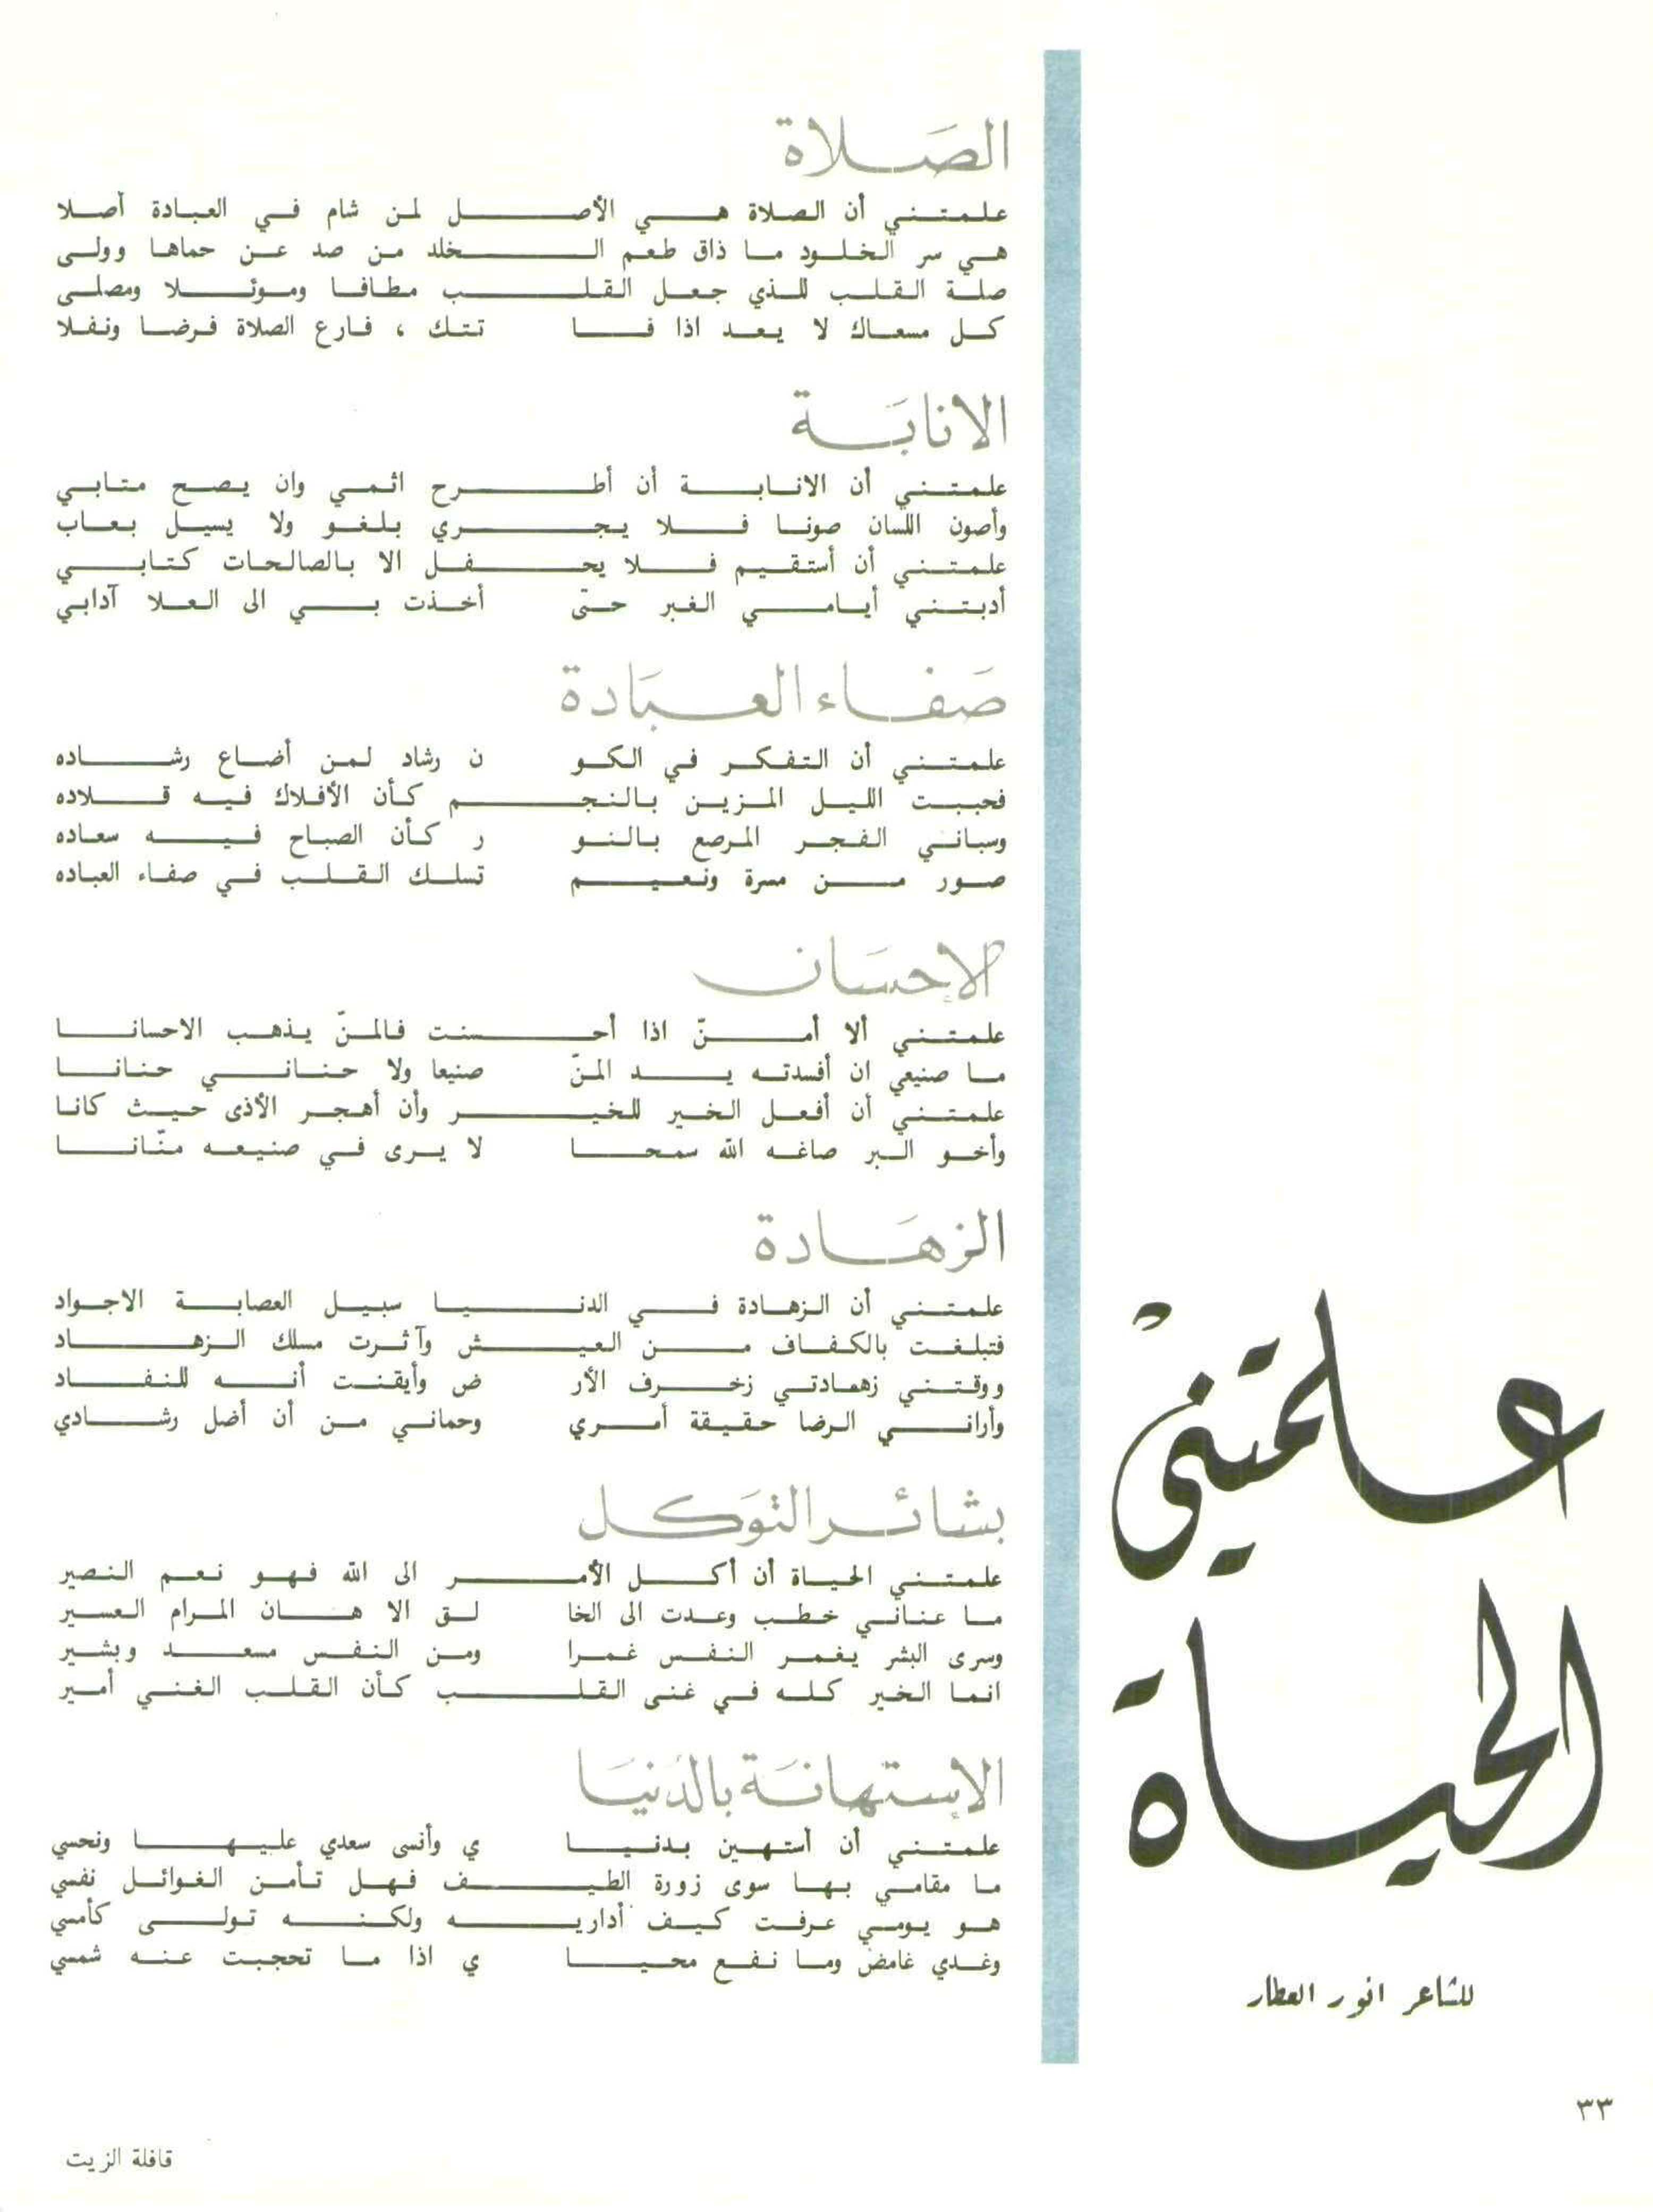 علمتني
الحياة
للشاعر انور العطار
الصلاة
علمتني أن الصلاة هي الأصل لمن شام في العبادة أصلا
هي سر الخلود ما ذاق طعم الخلد من صد عن حماها وولى
صلة القلب للذي جعل القلب مطافا وموئلا ومصلى
كل مسعاك لا يعد اذا فا تتك ، فارع الصلاة فرضا ونفلا
الانابة
علمتني أن الانابة أن أطرح اثمي وان يصح متابي
وأصون اللسان صونا فلا يجري بلغو ولا يسيل بعاب
علمتني أن أستقيم فلا يحفل الا بالصالحات كتابي
أدبتني أيامي الغبر حتى أخذت بي الى العلا آدابي
صفاء العبادة
علمتني أن التفكر في الكو ن رشاد لمن أضاع رشاده
فحببت الليل المزين بالنجم كأن الأفلاك فيه قلاده
وسباني الفجر المرصع بالنو ر كأن الصباح فيه سعاده
صور من مسرة ونعيم تسلك القلب في صفاء العباده
الإحسان
علمتني ألا أمنّ اذا أحسنت فالمنّ يذهب الاحسانا
ما صنيعي ان أفسدته يد المنّ صنيعا ولا حناني حنانا
علمتني أن أفعل الخير للخير وأن أهجر الأذى حيث كانا
وأخو البر صاغه الله سمحا لا يرى في صنيعه منّانا
الزهادة
علمتني أن الزهادة في الدنيا سبيل العصابة الاجواد
فتبلغت بالكفاف من العيش وآثرت مسلك الزهاد
ووقتني زهادتي زخرف الأر ض وأيقنت أنه للنفاد
وأراني الرضا حقيقة أمري وحماني من أن أضل رشادي
بشائر التوكل
علمتني الحياة أن أكل الأمر الى الله فهو نعم النصير
ما عناني خطب وعدت الى الخا لق الا هان المرام العسير
وسرى البشر يغمر النفس غمرا ومن النفس مسعد وبشير
انما الخير كله في غنى القلب كأن القلب الغني أمير
الإستهانة بالدنيا
علمتني أن أستهين بدنيا ي وأنسى سعدي عليها ونحسي
ما مقامي بها سوى زورة الطيف فهل تأمن الغوائل نفسي
هو يومي عرفت كيف أداريه ولكنه تولى كأمسي
وغدي غامض وما نفع محيا ي اذا ما تحجبت عنه شمسي
٣٣
قافلة الزيت